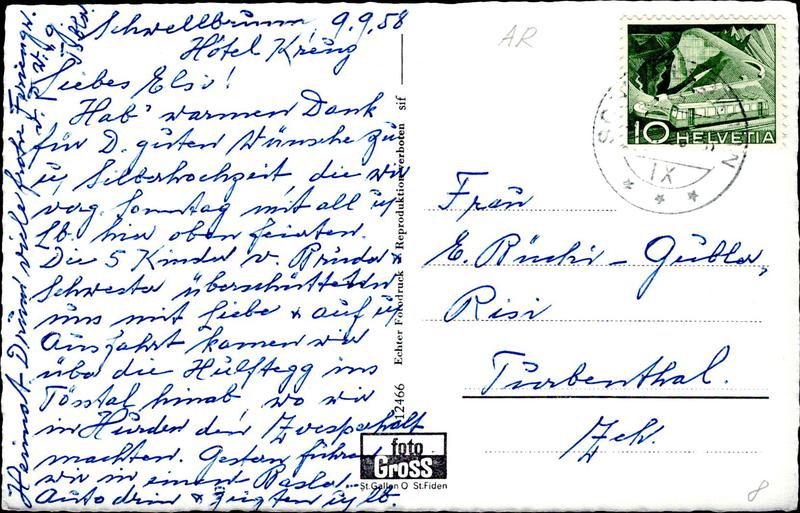 Schwellbrunn, 9.9.58
Hotel Kreuz
Liebes Elsi!
Hab' warmen Dank
für D. guten Wünsche zu
u/ Silberhochzeit die wir
verg. Sonntag mit all u/
Lb. hier oben feierten.
Die 5 Kinder v. Bruder &
Schwester überschütteten
uns mit Liebe & auf u/
Ausfahrt kamen wir
über die Hulftegg ins
Tösstal hinab wo wir
in Hurden den Zvesperhalt
machten. Gestern fuhren
wir in einem Basler
Auto drin & zeigten u/ lb.
Heimat Drum viele frohe Feriengr.
AR
10 HELVETIA
IX
Frau
E. Büchi-Gubler,
Risi
Turbenthal.
Zch.
12466 Echter Fotodruck Reproduktion verboten sif
foto
GROSS
St.Gallen O St.Fiden
8